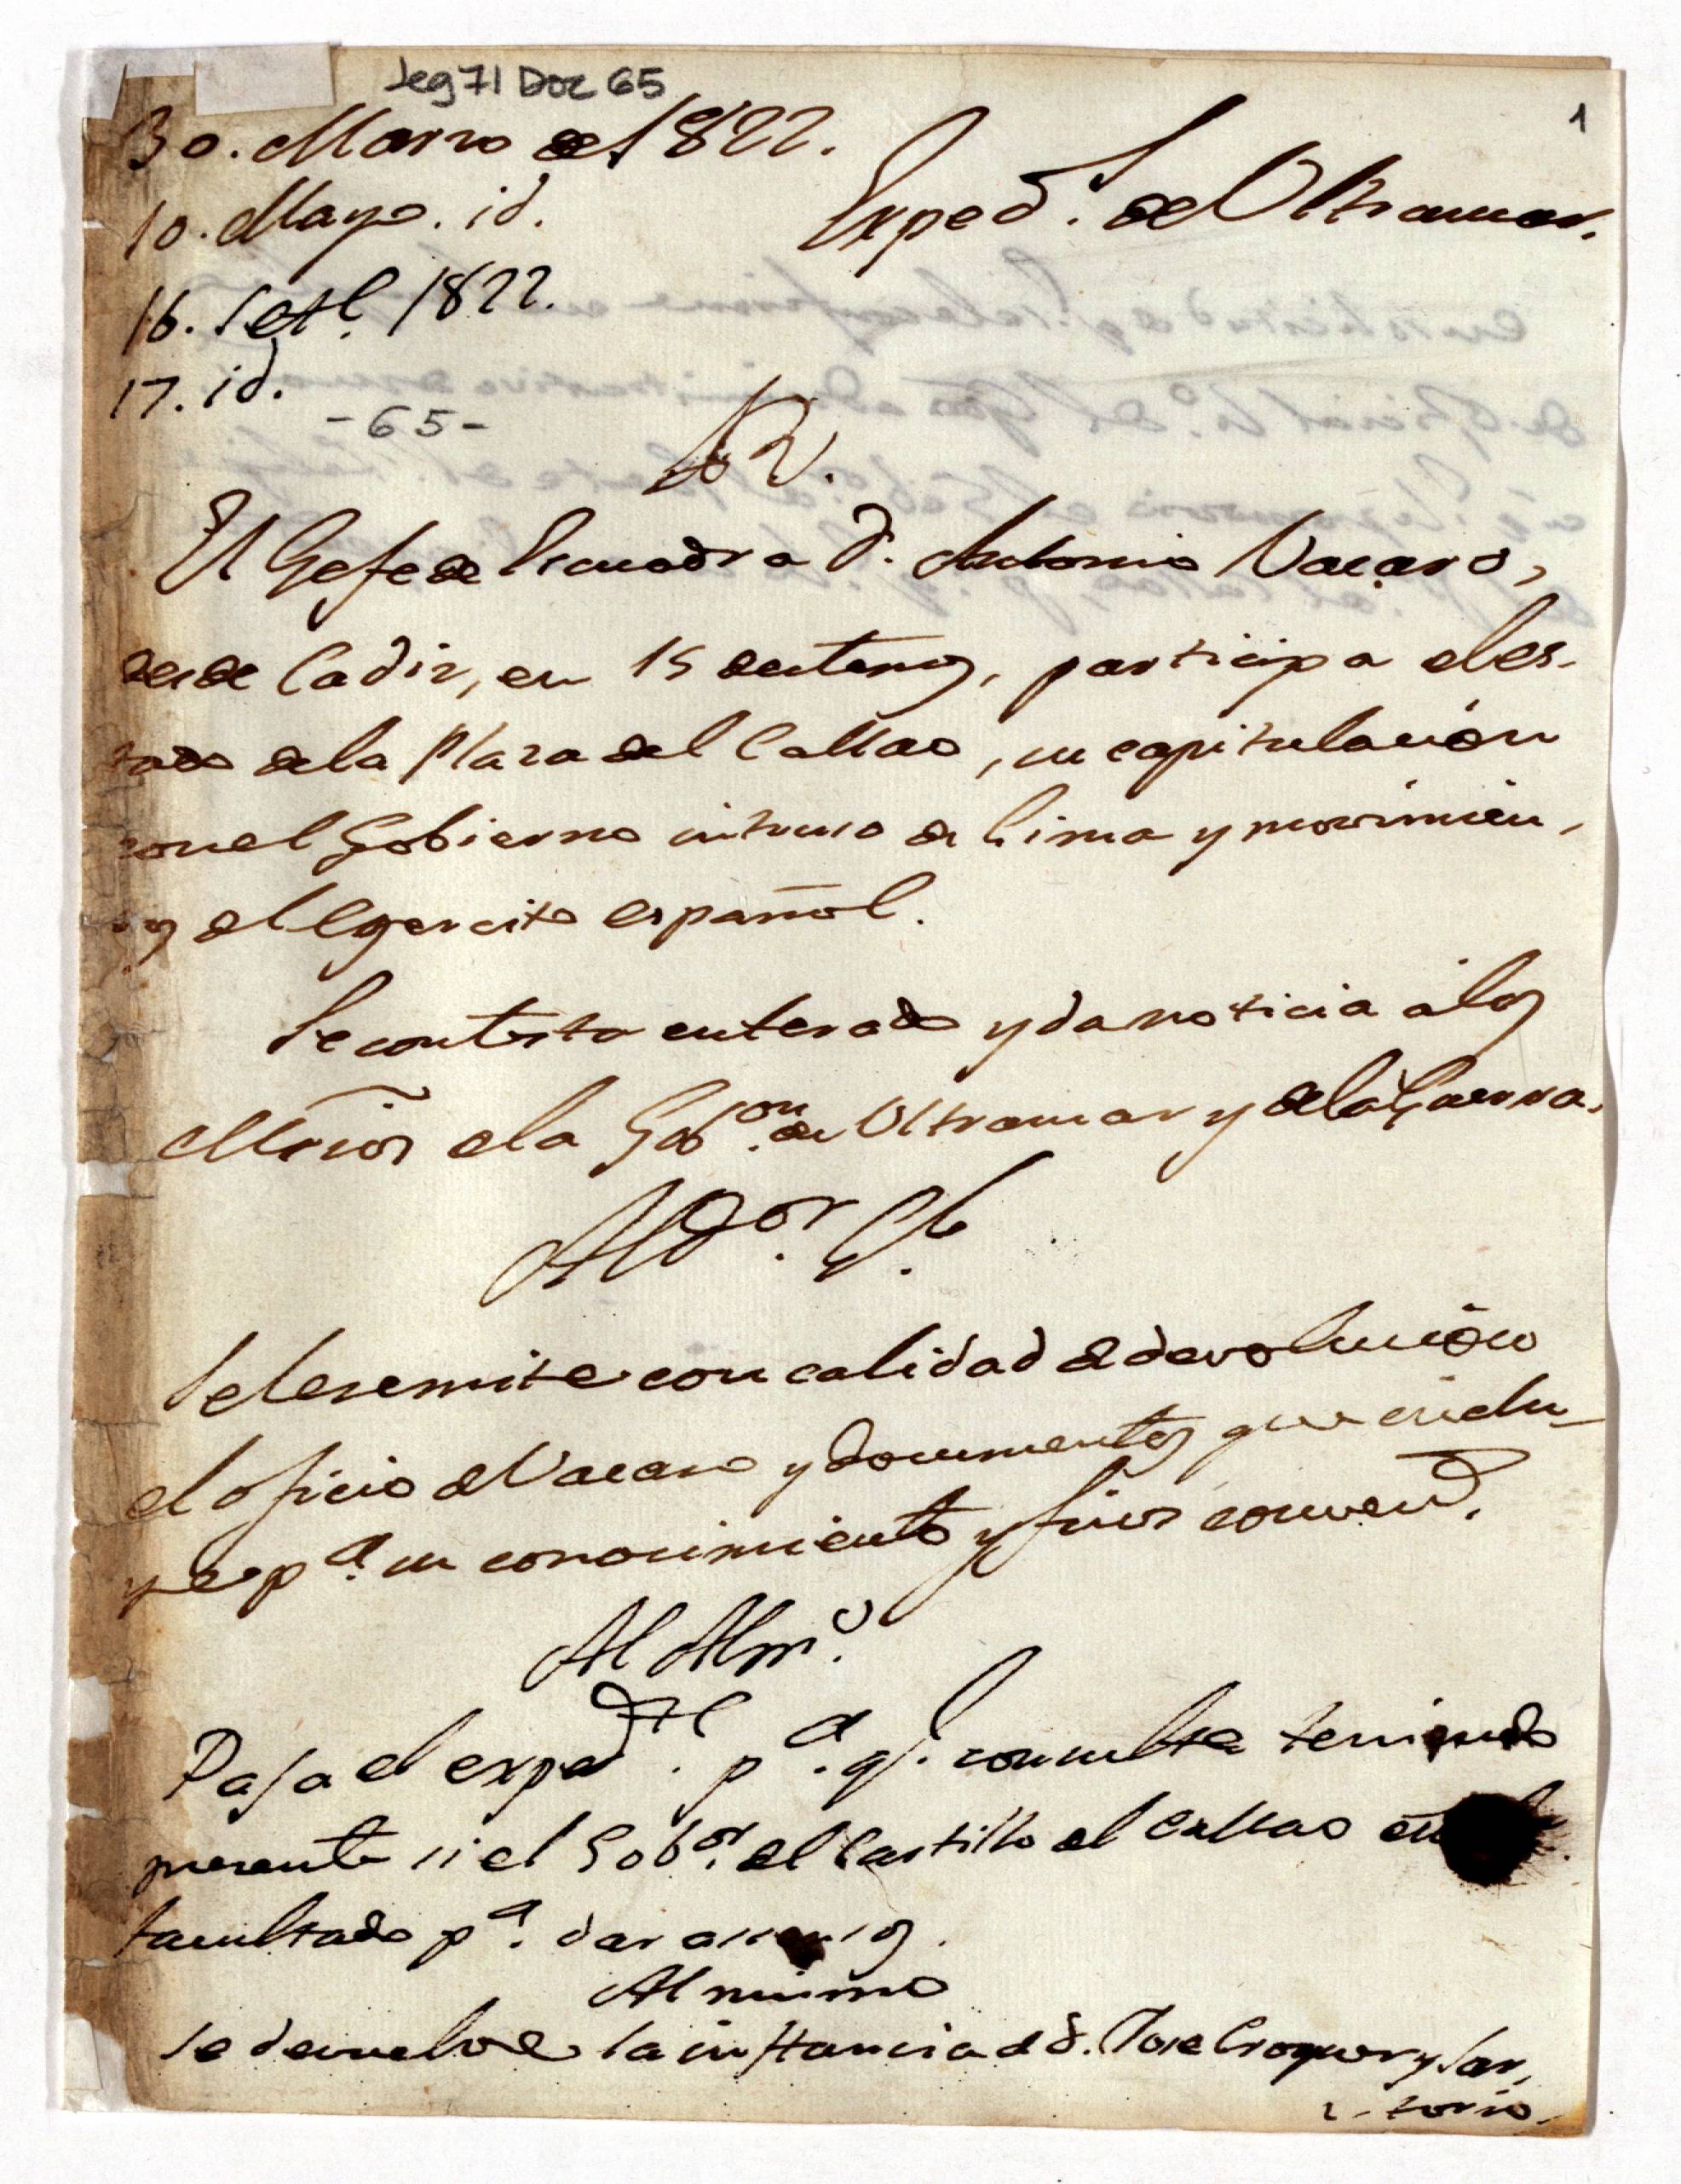 Leg 71 Doc 65
1
30. Marzo de 1822.
Exped.te de Ultramar.
10. Mayo. id.
16. Set.e 1822.
17. id.
-65-
El Gefe de Escuadra D. Antonio Vacaro,
desde Cadiz, en 15 de este mes, participa el es-
tado de la Plaza del Callao, su capitulación
con el Gobierno intruso de Lima y movimien,
tos del Egercito español.
Se contesta enterado y da noticia á los
Mrios de la Gob.on de Ultramar y de la Guerra.
Se les remite con calidad de devolución
el oficio de Vacaro y documentos que inclu-
ye p.a su conocimiento y fines conven.
Al Alm.o
Pasa el exped.te p.a q.e consulte teniendo
presente si el Gob.or del Castillo del Callao
facultado p.a dar ascensos.
Al mismo
Se devuelve la instancia de D. Jose Croquer y Sar,
torio.